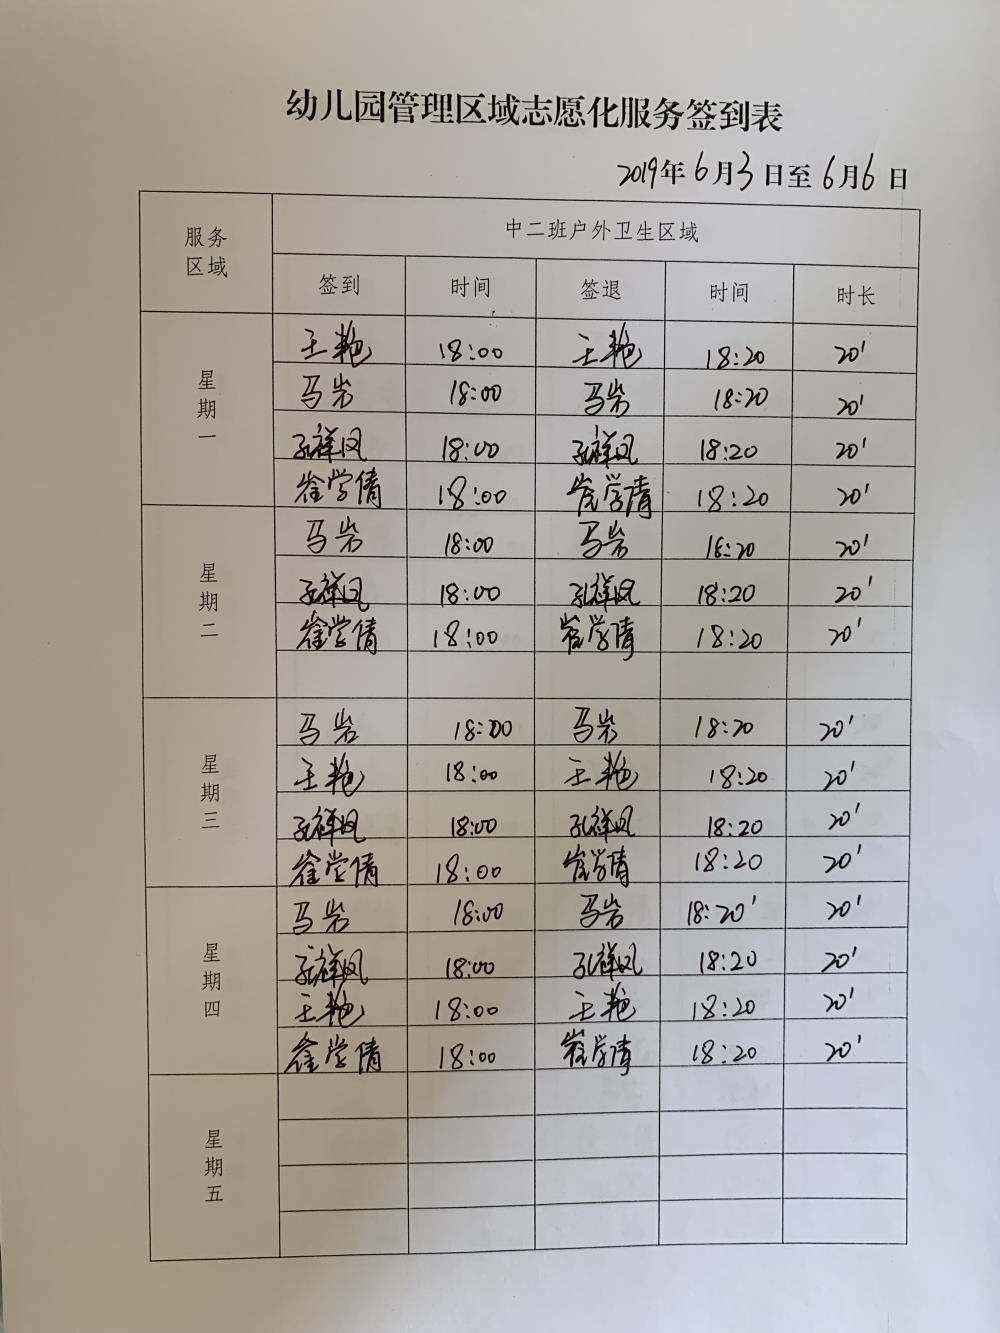 幼儿园管理区域志愿化服务签到表
2019年6月3日至6月6日
服务区域 中二班户外卫生区域
签到 时间 签退 时间 时长
星期一
王艳 18:00 王艳 18:20 20'
马岩 18:00 马岩 18:20 20'
孔祥凤 18:00 孔祥凤 18:20 20'
崔学倩 18:00 崔学倩 18:20 20'
星期二
马岩 18:00 马岩 18:20 20'
孔祥凤 18:00 孔祥凤 18:20 20'
崔学倩 18:00 崔学倩 18:20 20'
星期三
马岩 18:00 马岩 18:20 20'
王艳 18:00 王艳 18:20 20'
孔祥凤 18:00 孔祥凤 18:20 20'
崔学倩 18:00 崔学倩 18:20 20'
星期四
马岩 18:00 马岩 18:20' 20'
孔祥凤 18:00 孔祥凤 18:20 20'
王艳 18:00 王艳 18:20 20'
崔学倩 18:00 崔学倩 18:20 20'
星期五